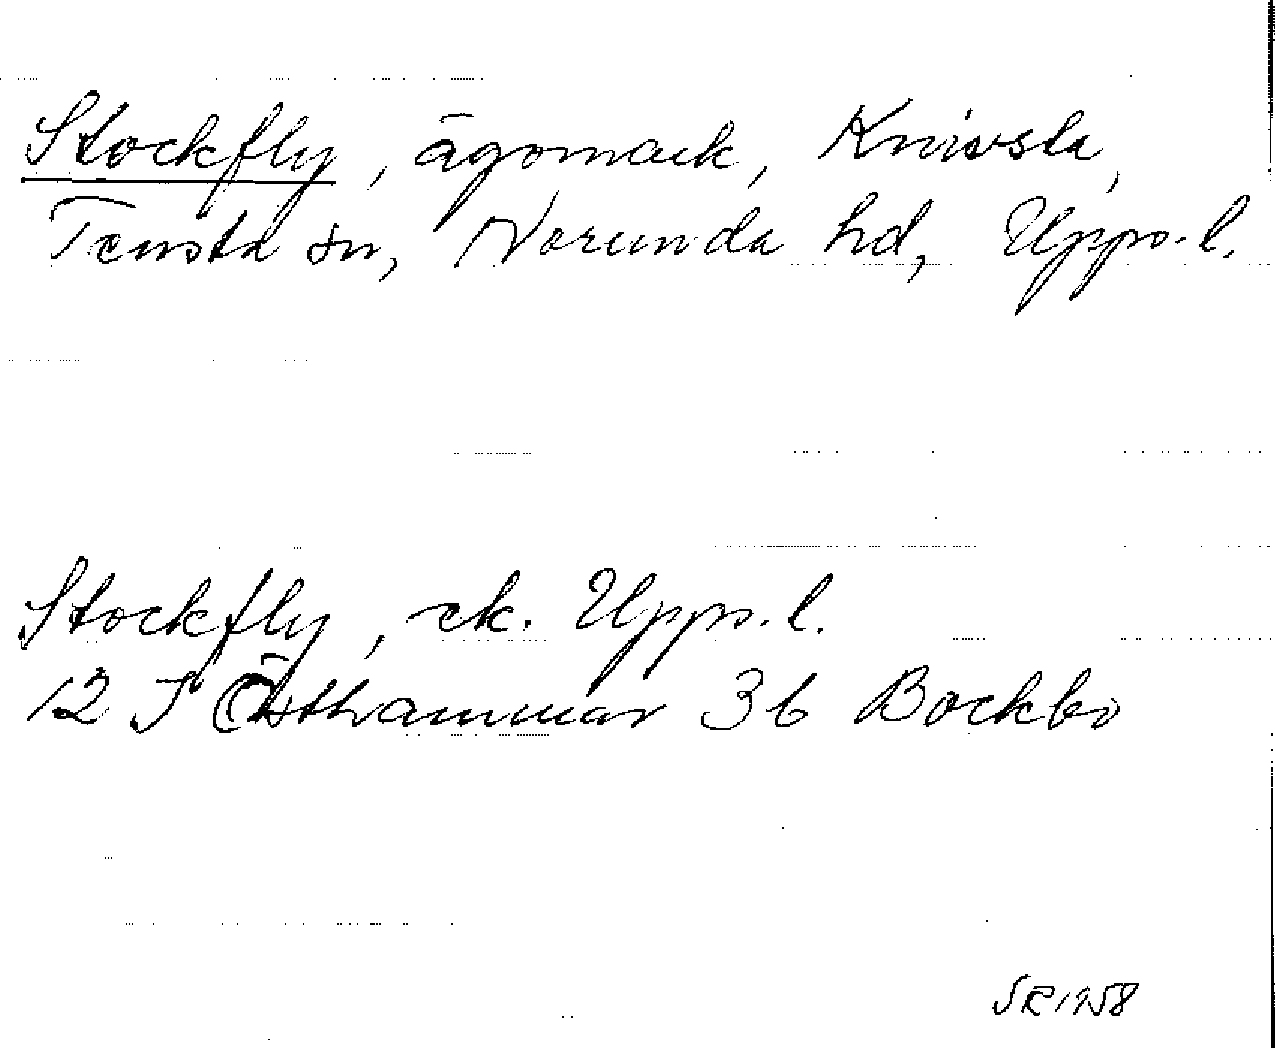 Stockfly, ägomark, Knivsta,
Tensta sn, Norunda hd, Upps. l.
Stockfly, ek. Upps. l.
12 I Östhammar 3b Bockbo
SR 1958